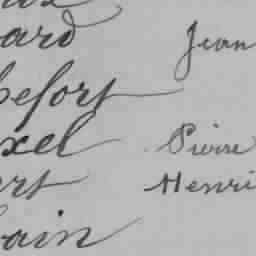 ard Jean
befort
xel Pierre
ert Henri
bain